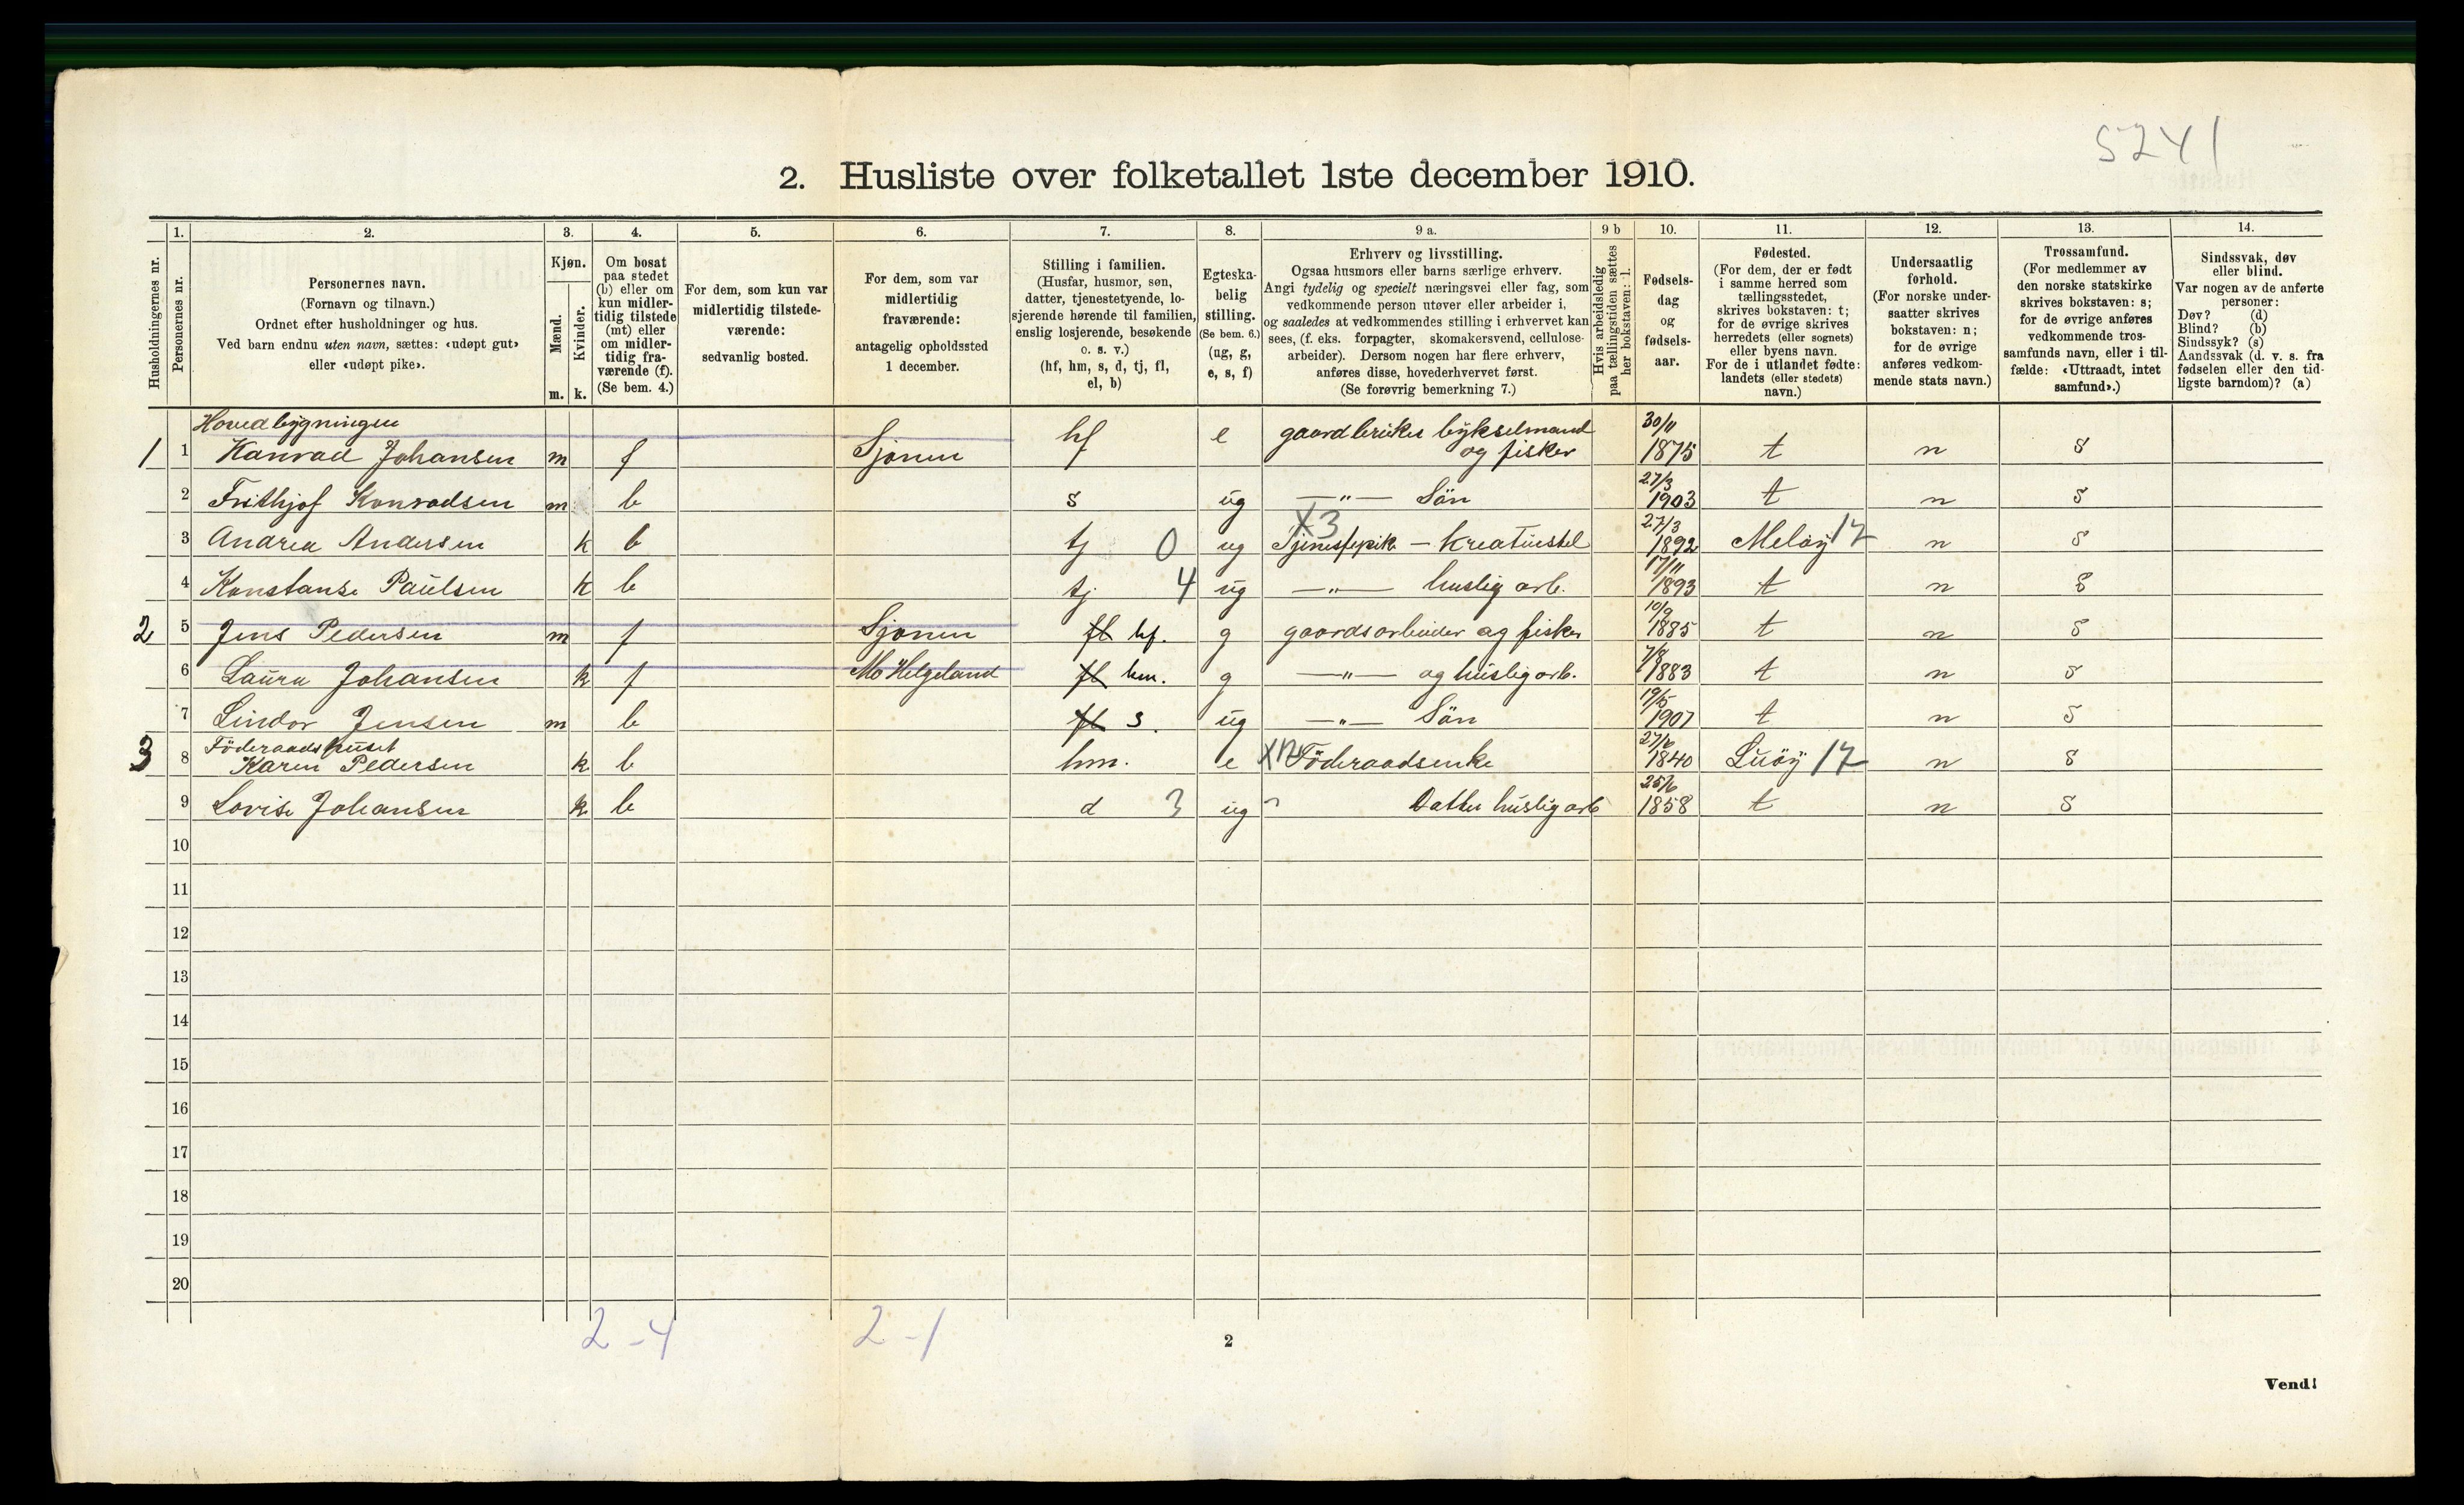 5241
2. Husliste over folketallet 1ste december 1910.
Husholdningernes nr.
1.
Personernes nr.
2.
Personernes navn.
(Fornavn og tilnavn.)
Ordnet efter husholdninger og hus.
Ved barn endnu uten navn, sættes: «udøpt gut»
eller «udøpt pike».
3.
Kjøn.
Mænd.
Kvinder.
m. k.
4.
Om bosat
paa stedet
(b) eller om
kun midler-
tidig tilstede
(mt) eller
om midler-
tidig fra-
værende (f).
(Se bem. 4.)
5.
For dem, som kun var
midlertidig tilstede-
værende:
sedvanlig bosted.
6.
For dem, som var
midlertidig
fraværende:
antagelig opholdssted
1 december.
7.
Stilling i familien.
(Husfar, husmor, søn,
datter, tjenestetyende, lo-
sjerende hørende til familien,
enslig losjerende, besøkende
o. s. v.)
(hf, hm, s, d, tj, fl,
el, b)
8.
Egteska-
belig
stilling.
(Se bem. 6.)
(ug, g,
e, s, f)
9 a.
Erhverv og livsstilling.
Ogsaa husmors eller barns særlige erhverv.
Angi tydelig og specielt næringsvei eller fag, som
vedkommende person utøver eller arbeider i,
og saaledes at vedkommendes stilling i erhvervet kan
sees, (f. eks. forpagter, skomakersvend, cellulose-
arbeider). Dersom nogen har flere erhverv,
anføres disse, hovederhvervet først.
(Se forøvrig bemerkning 7.)
9 b
Hvis arbeidsledig
paa tællingstiden sættes
her bokstaven: l.
10.
Fødsels-
dag
og
fødsels-
aar.
11.
Fødested.
(For dem, der er født
i samme herred som
tællingsstedet,
skrives bokstaven: t;
for de øvrige skrives
herredets (eller sognets)
eller byens navn.
For de i utlandet fødte:
landets (eller stedets)
navn.)
12.
Undersaatlig
forhold.
(For norske under-
saatter skrives
bokstaven: n;
for de øvrige
anføres vedkom-
mende stats navn.)
13.
Trossamfund.
(For medlemmer av
den norske statskirke
skrives bokstaven: s;
for de øvrige anføres
vedkommende tros-
samfunds navn, eller i til-
fælde: «Uttraadt, intet
samfund».)
14.
Sindssvak, døv
eller blind.
Var nogen av de anførte
personer:
Døv? (d)
Blind? (b)
Sindssyk? (s)
Aandssvak (d. v. s. fra
fødselen eller den tid-
ligste barndom)? (a)
Hovedbygningen
1 1 Konrad Johansen m f Sjonen hf e gaardbruker bykselmand og fisker 30/11 1875 t n s
2 Frithjof Konradsen m b s ug —"— Sön 27/3 1903 t n s
3 Andrea Andersen k b tj 0 ug X3 Tjenestepik — Kreaturstel 27/3 1892 Meløy 17 n s
4 Konstanse Paulsen k b tj 4 ug —"— huslig arb. 17/11 1893 t n s
2 5 Jens Pedersen m f Sjonen fl hf. g gaardsarbeider og fisker 10/9 1885 t n s
6 Laura Johansen k f Mo Helgeland fl hm. g —"— og huslig arb. 7/8 1883 t n s
7 Lindor Jensen m b fl s. ug —"— Sön 19/5 1907 t n s
Föderaadshuset
3 8 Karen Pedersen k b hm. e Föderaadsenke 27/6 1840 Luöy 17 n s
9 Lovise Johansen k b d 3 ug Datter huslig arb 25/6 1858 t n s
10
11
12
13
14
15
16
17
18
19
20
2-4 2-1
2
Vend!